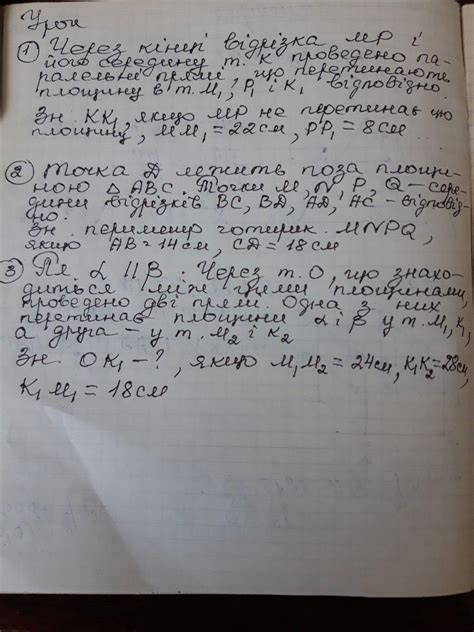 Урок
① Через кінці відрізка MP і
його середину т. K проведено па-
ралельні прямі, що перетинають
площину в т. M₁, P₁ і K₁ відповідно.
Зн. KK₁, якщо MP не перетинає цю
площину, MM₁=22см, PP₁=8см
② Точка D лежить поза площи-
ною △ABC. Точки M, N, P, Q - сере-
дини відрізків BC, BD, AD, AC - відповід-
но.
Зн. периметр чотирик. MNPQ,
якщо AB=14см, CD=18см
③ Пл. α ∥ β. Через т. O, що знахо-
диться між цими площинами
проведено дві прямі. Одна з них
перетинає площини α і β у т. M₁, K₁,
а друга - у т. M₂ і K₂
Зн OK₁ - ?, якщо M₁M₂=24см, K₁K₂=28см,
K₁M₁=18см